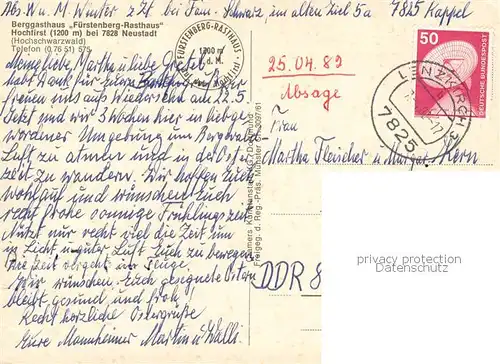 Abs. Wu. M. Winter z Zt bei Fam. Schwarz im alten Ziel 5a 7825 Kappel
Berggasthaus „Fürstenberg-Rasthaus"
Hochfirst (1200 m) bei 7828 Neustadt
(Hochschwarzwald)
Telefon (0 76 51) 575
FÜRSTENBERG-RASTHAUS
1200 m
ü. d. M.
50
DEUTSCHE BUNDESPOST
LENZKIRCH 3
7825
25.04.89
Absage
Meine liebe Martha u liebe Gretel
habt Dank für Eure
freuen uns aufs Wiedersehn am 22.5
Jetzt sind wir 3 Wochen hier in liebge
wordener Umgebung um Bergwald
Luft zu atmen und in der Oster
zeit zu wandern. Wir hoffen Euch
wohlauf und wünschen Euch
recht frohe sonnige Frühlingszeit
Nützt nur recht viel die Zeit um
in Licht u guter Luft Euch zu bewegen
Die Zeit vergeht im Fluge.
Wir wünschen Euch gesegnete Ostern
bleibt gesund und froh!
Recht herzliche Ostergrüße
Eure Mannheimer Martin u Walli
Frau
Martha Fleischer u Margar. Kern
DDR 8
Cramers Kunstanstalt KG, Dortmund
Freigeg. d. Reg.-Präs. Münster
privacy protection
Datenschutz